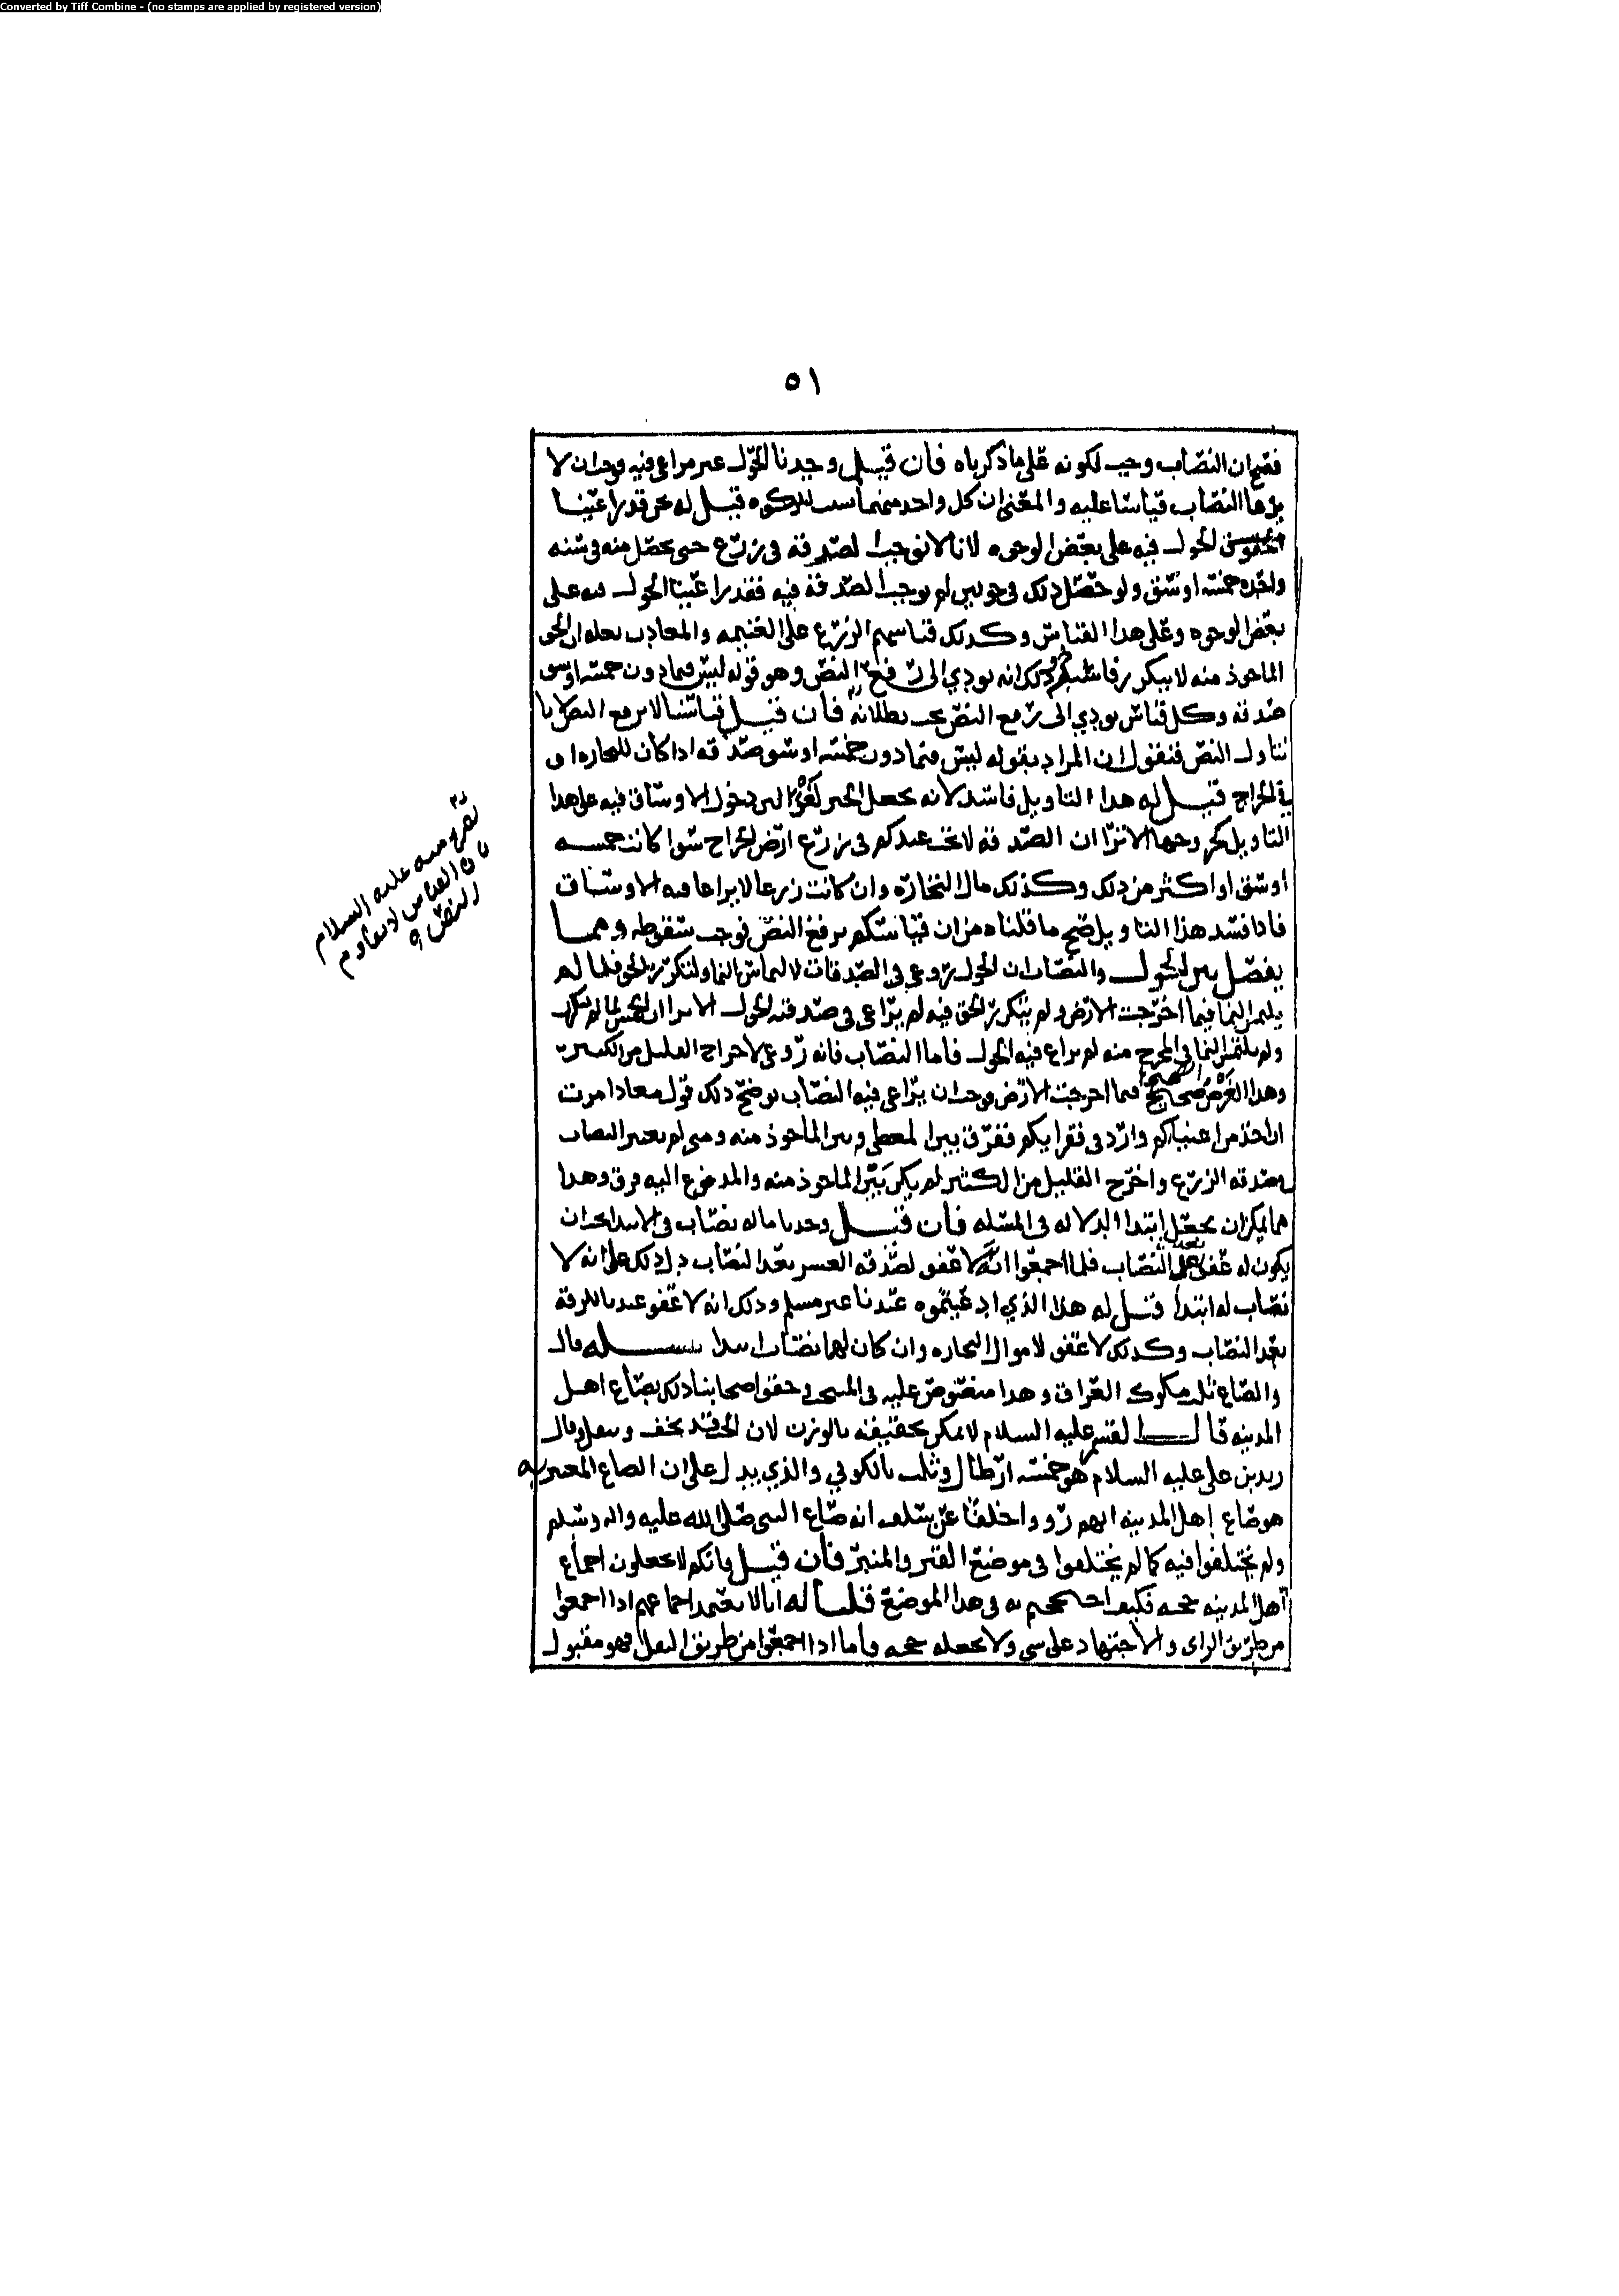 Converted by Tiff Combine - (no stamps are applied by registered version)
٥١
فصح ان النصاب وجب لكونه على ما ذكرناه فان قيل وجدنا الحول غير مراعى فيه فوجب ان لا
النصاب قياسا عليه والمعنى ان كل واحد منهما سبب للزكوه قيل له نحن قد راعينا
الحول فيه على بعض الوجوه لانا لا نوجب الصدقة في زرع حتى يحصل منه في سنه
واحده خمسه اوسق ولو حصل ذلك في حولين لم نوجب الصدقة فيه فقد راعينا الحول فيه على
بعض الوجوه وعلى هذا القياس وكذلك قياسهم الزرع على الغنيمه والمعادن بعله ان الحق
الماخوذ منه لا يتكرر فاسد وذلك انه يودي الى رفع النص وهو قوله ليس فيما دون خمسه اوسق
صدقه وكل قياس يودي الى رفع النص يجب بطلانه فان قيل قياسنا لا يرفع النص لانا
نتاول النص فنقول ان المراد بقوله ليس فيما دون خمسه اوسق صدقه اذا كان للتجاره او
في الخراج قيل له هذا التاويل فاسد لانه يجعل الخبر لغوا دخول الاوساق فيه على هذا
التاويل الا ترا ان الصدقه لا تجب عندكم في زرع ارض الخراج سوا كانت خمسه
اوسق او اكثر من ذلك وكذلك مال التجاره وان كانت زرعا لا يراعا فيه الاوساق
فاذا فسد هذا التاويل صح ما قلناه من ان قياسكم يرفع النص فوجب سقوطه ومما
يفصل بين الحول والنصاب ان الحول روعي في الصدقات لالتماس النما ولتكرر الحق فلما لم
يلتمس النما فيما اخرجت الارض ولم يتكرر الحق فيه لم يراعى في صدقته الحول الا ترا ان الخمس لما لم يتكرر
ولم يلتمس النما في المخرج منه لم يراع فيه الحول فاما النصاب فانه روعي لاخراج القليل من الكثير
وهذا الغرض صحيح فيما اخرجت الارض فوجب ان يراعى فيه النصاب يوضح ذلك قول معاذ امرت
ان اخذ من اغنيائكم وارد في فقرايكم ففرق بين المعطي وبين الماخوذ منه ومتى لم يعتبر النصاب
في صدقه الزرع واخرج القليل من الكثير لم يكن بين الماخوذ منه والمدفوع اليه فرق وهذا
مما يمكن ان يجعل ابتدا الدلاله في المسله فان قيل وجدنا ما له نصاب في الابتدا يجب ان
يكون له عفو بعد النصاب فلما اجمعوا انه لا عفو لصدقه العشر بعد النصاب دل ذلك على انه لا
نصاب له ابتدا قيل له هذا الذي ادعيتموه عندنا غير مسلم وذلك انه لا عفو عندنا للرقة
بعد النصاب وكذلك لا عفو لاموال التجاره وان كان لهما نصاب ابتدا مسله قال
والصاع ثلث مكوك العراق وهذا منصوص عليه في المنتخب وحقق اصحابنا ذلك بصاع اهل
المدينه قال القسم عليه السلام لا يمكن تحقيقه بالوزن لان الحب قد يخف ويثقل وقال
زيد بن علي عليه السلام هو خمسه ارطال وثلث بالكوفي والذي يدل على ان الصاع المعتبر به
هو صاع اهل المدينه انهم رووا خلفا عن سلف انه صاع النبي صلى الله عليه واله وسلم
ولم يختلفوا فيه كما لم يختلفوا في موضع القبر والمنبر فان قيل فانكم لا تجعلون اجماع
اهل المدينه حجه فكيف احتججتم به في هذا الموضع قلنا له انا لا نعتمد اجماعهم اذا اجمعوا
من طريق الراى والاجتهاد على شي ولا نجعله حجه واما اذا اجمعوا من طريق النقل فهو مقبول
عليه السلام
بان القياس لا يقاوم
النص